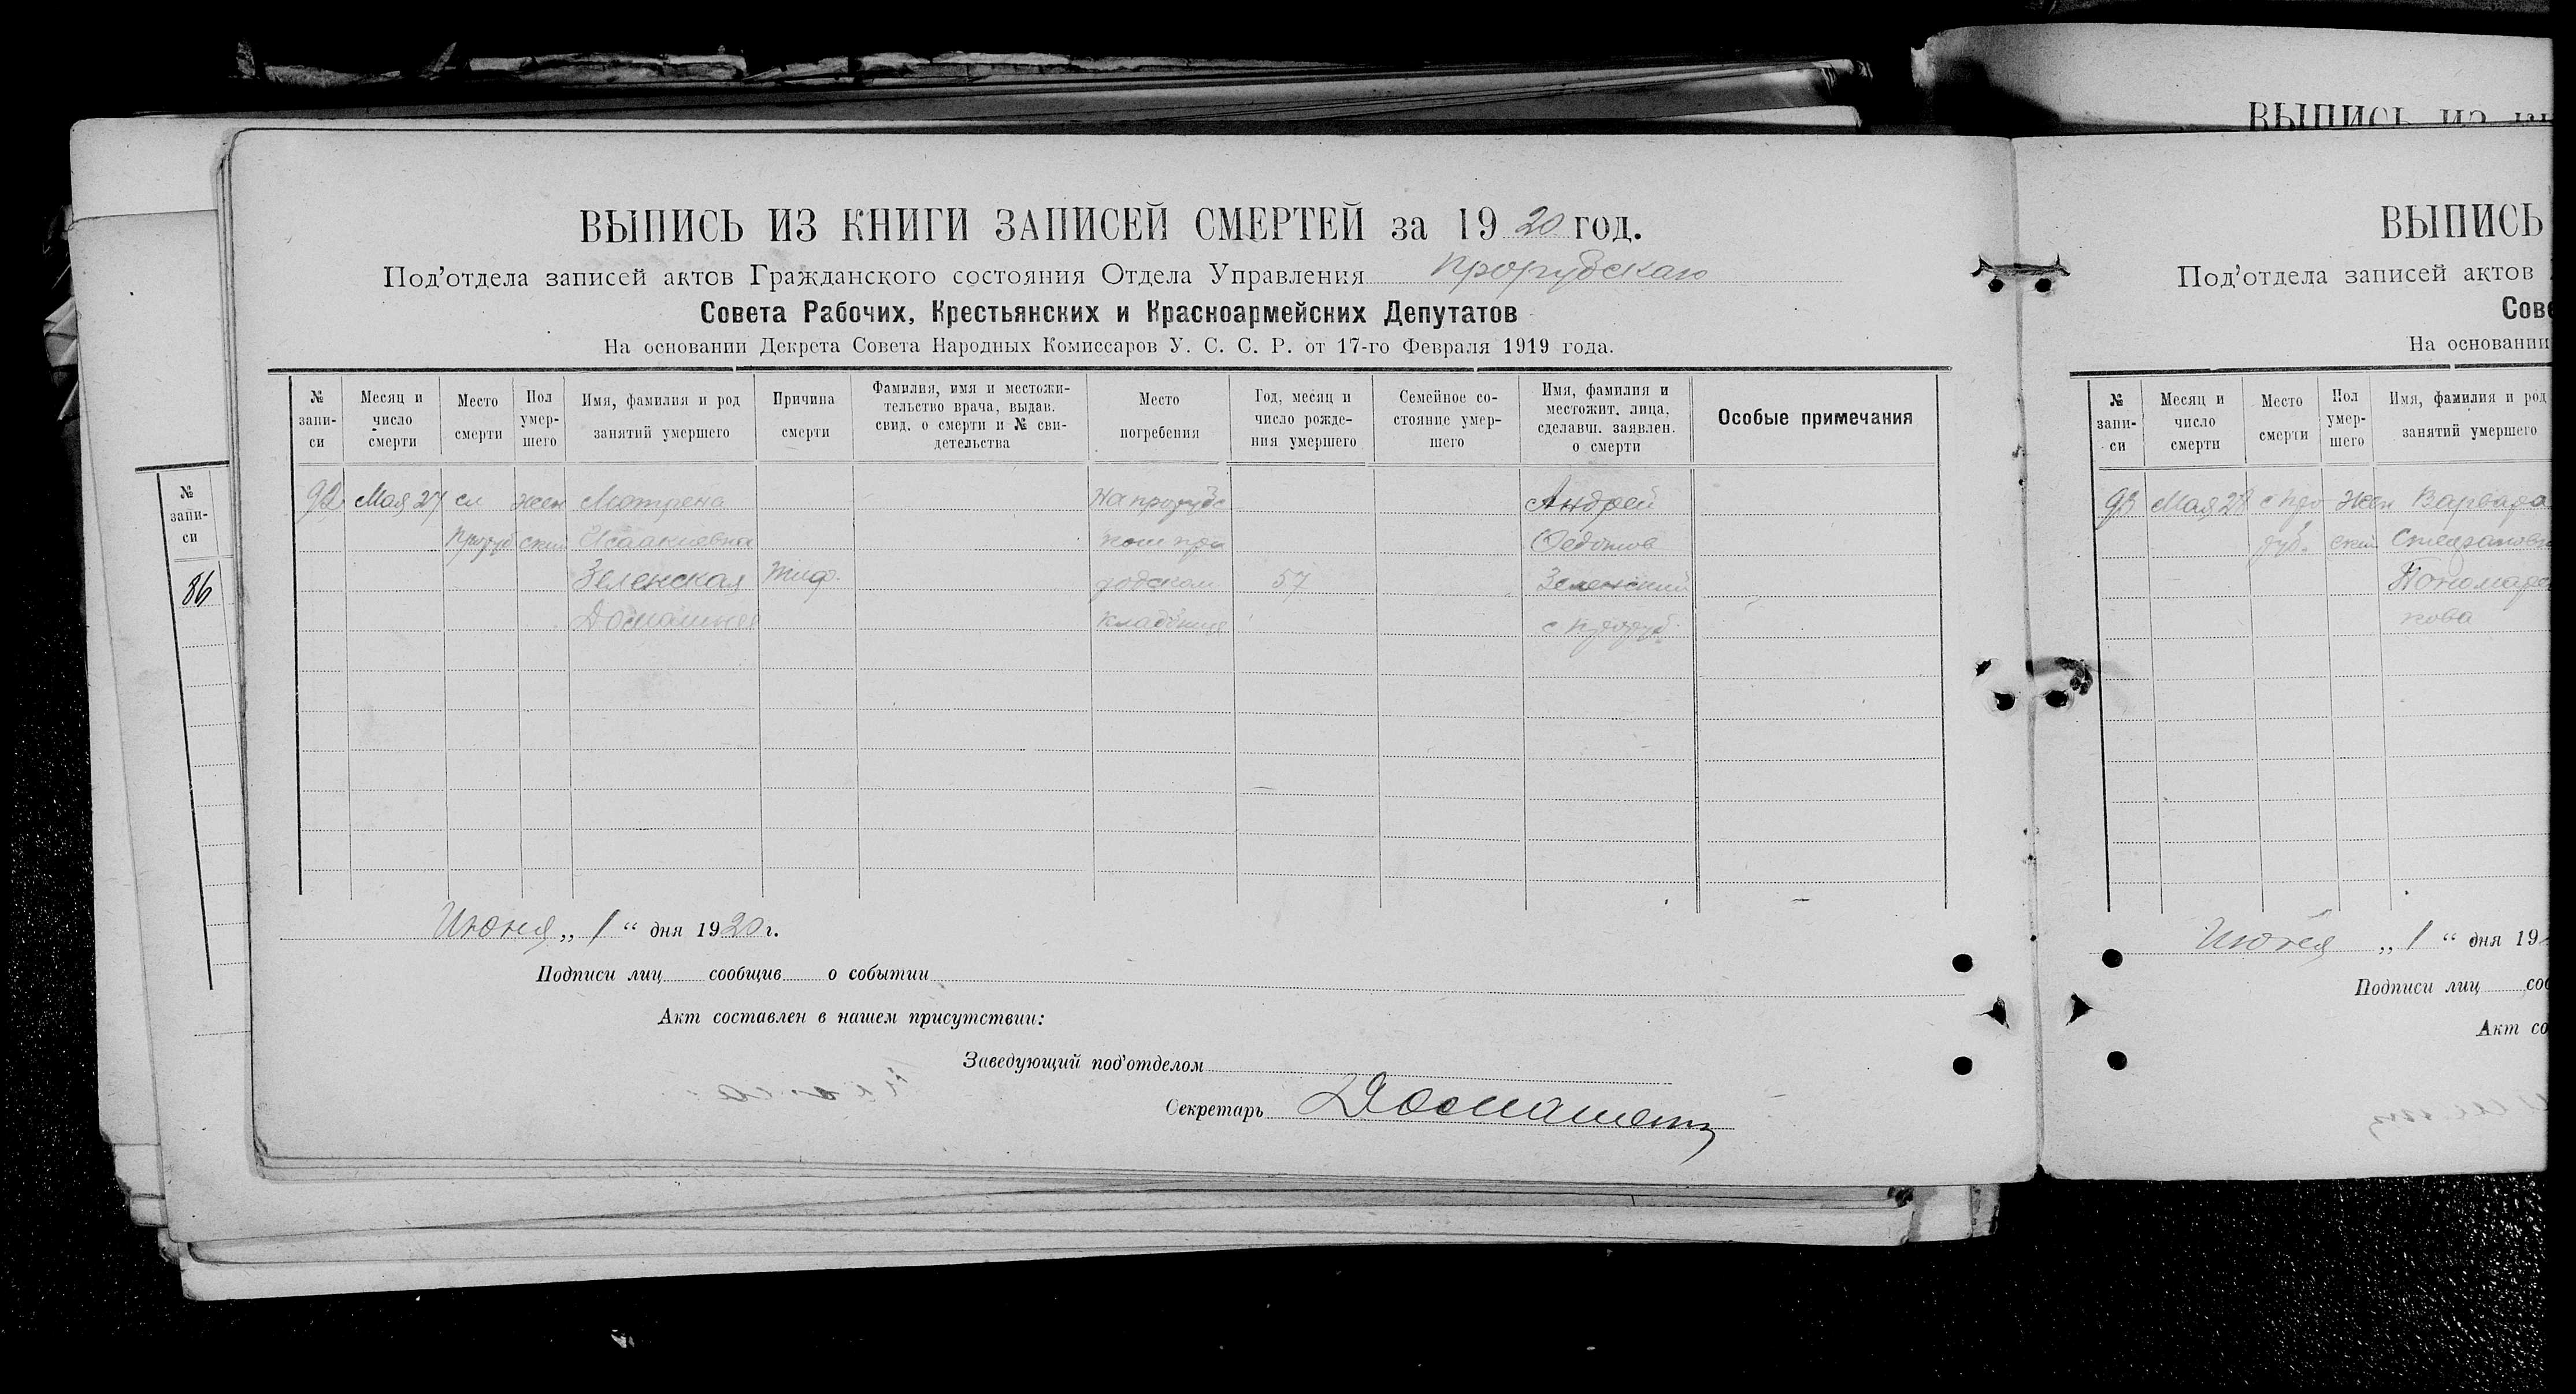 ВЫПИСЬ ИЗ КНИГИ ЗАПИСЕЙ СМЕРТЕЙ за 1920 год.
Под'отдела записей актов Гражданского состояния Отдела Управления Прорубскаго
Совета Рабочих, Крестьянских и Красноармейских Депутатов
На основании Декрета Совета Народных Комиссаров У. С. С. Р. от 17-го Февраля 1919 года.
№ запи-си
Месяц и число смерти
Место смерти
Пол умер-шего
Имя, фамилия и род занятий умершего
Причина смерти
Фамилия, имя и местожи-тельство врача, выдав. свид. о смерти и № сви-детельства
Место погребения
Год, месяц и число рожде-ния умершего
Семейное со-стояние умер-шего
Имя, фамилия и местожит. лица, сделавш. заявлен. о смерти
Особые примечания
92 Мая 27 сл жен Мотрена На прорубс Андрей
Проруб ский Исаакиевна Федотов
Зеленская Тиф. родском 57 Зеленский
Домашняя кладбище с Проруб.
Июня „ 1 “ дня 1920 г.
Подписи лиц сообщив о событии
Акт составлен в нашем присутствии:
Заведующий под'отделом
Секретарь
№ запи-си
86
ВЫПИСЬ ИЗ
ВЫПИСЬ
Под'отдела записей актов
Сове
На основании
№ запи-си
Месяц и число смерти
Место смерти
Пол умер-шего
Имя, фамилия и род занятий умершего
93 Мая 28 с Про Жен Варвара
руб. ский
Пономарен
кова
Июня „ 1 “ дня 19
Подписи лиц соо
Акт со